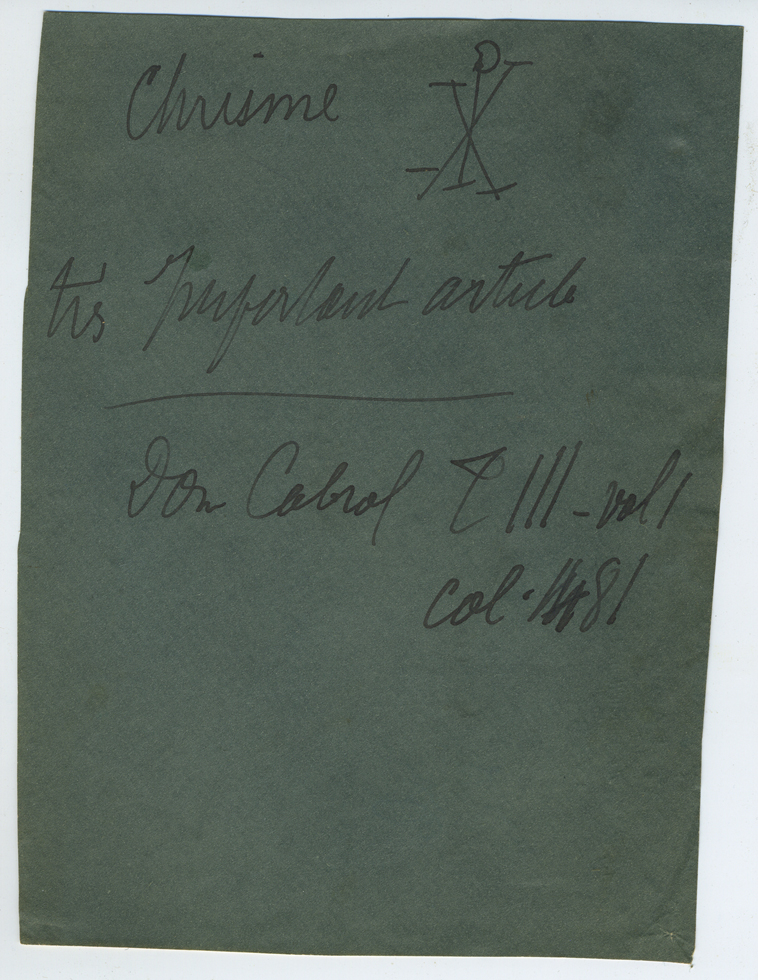 Chrisme ☧
très Important article
Dom Cabrol T III - vol 1
col. 1481